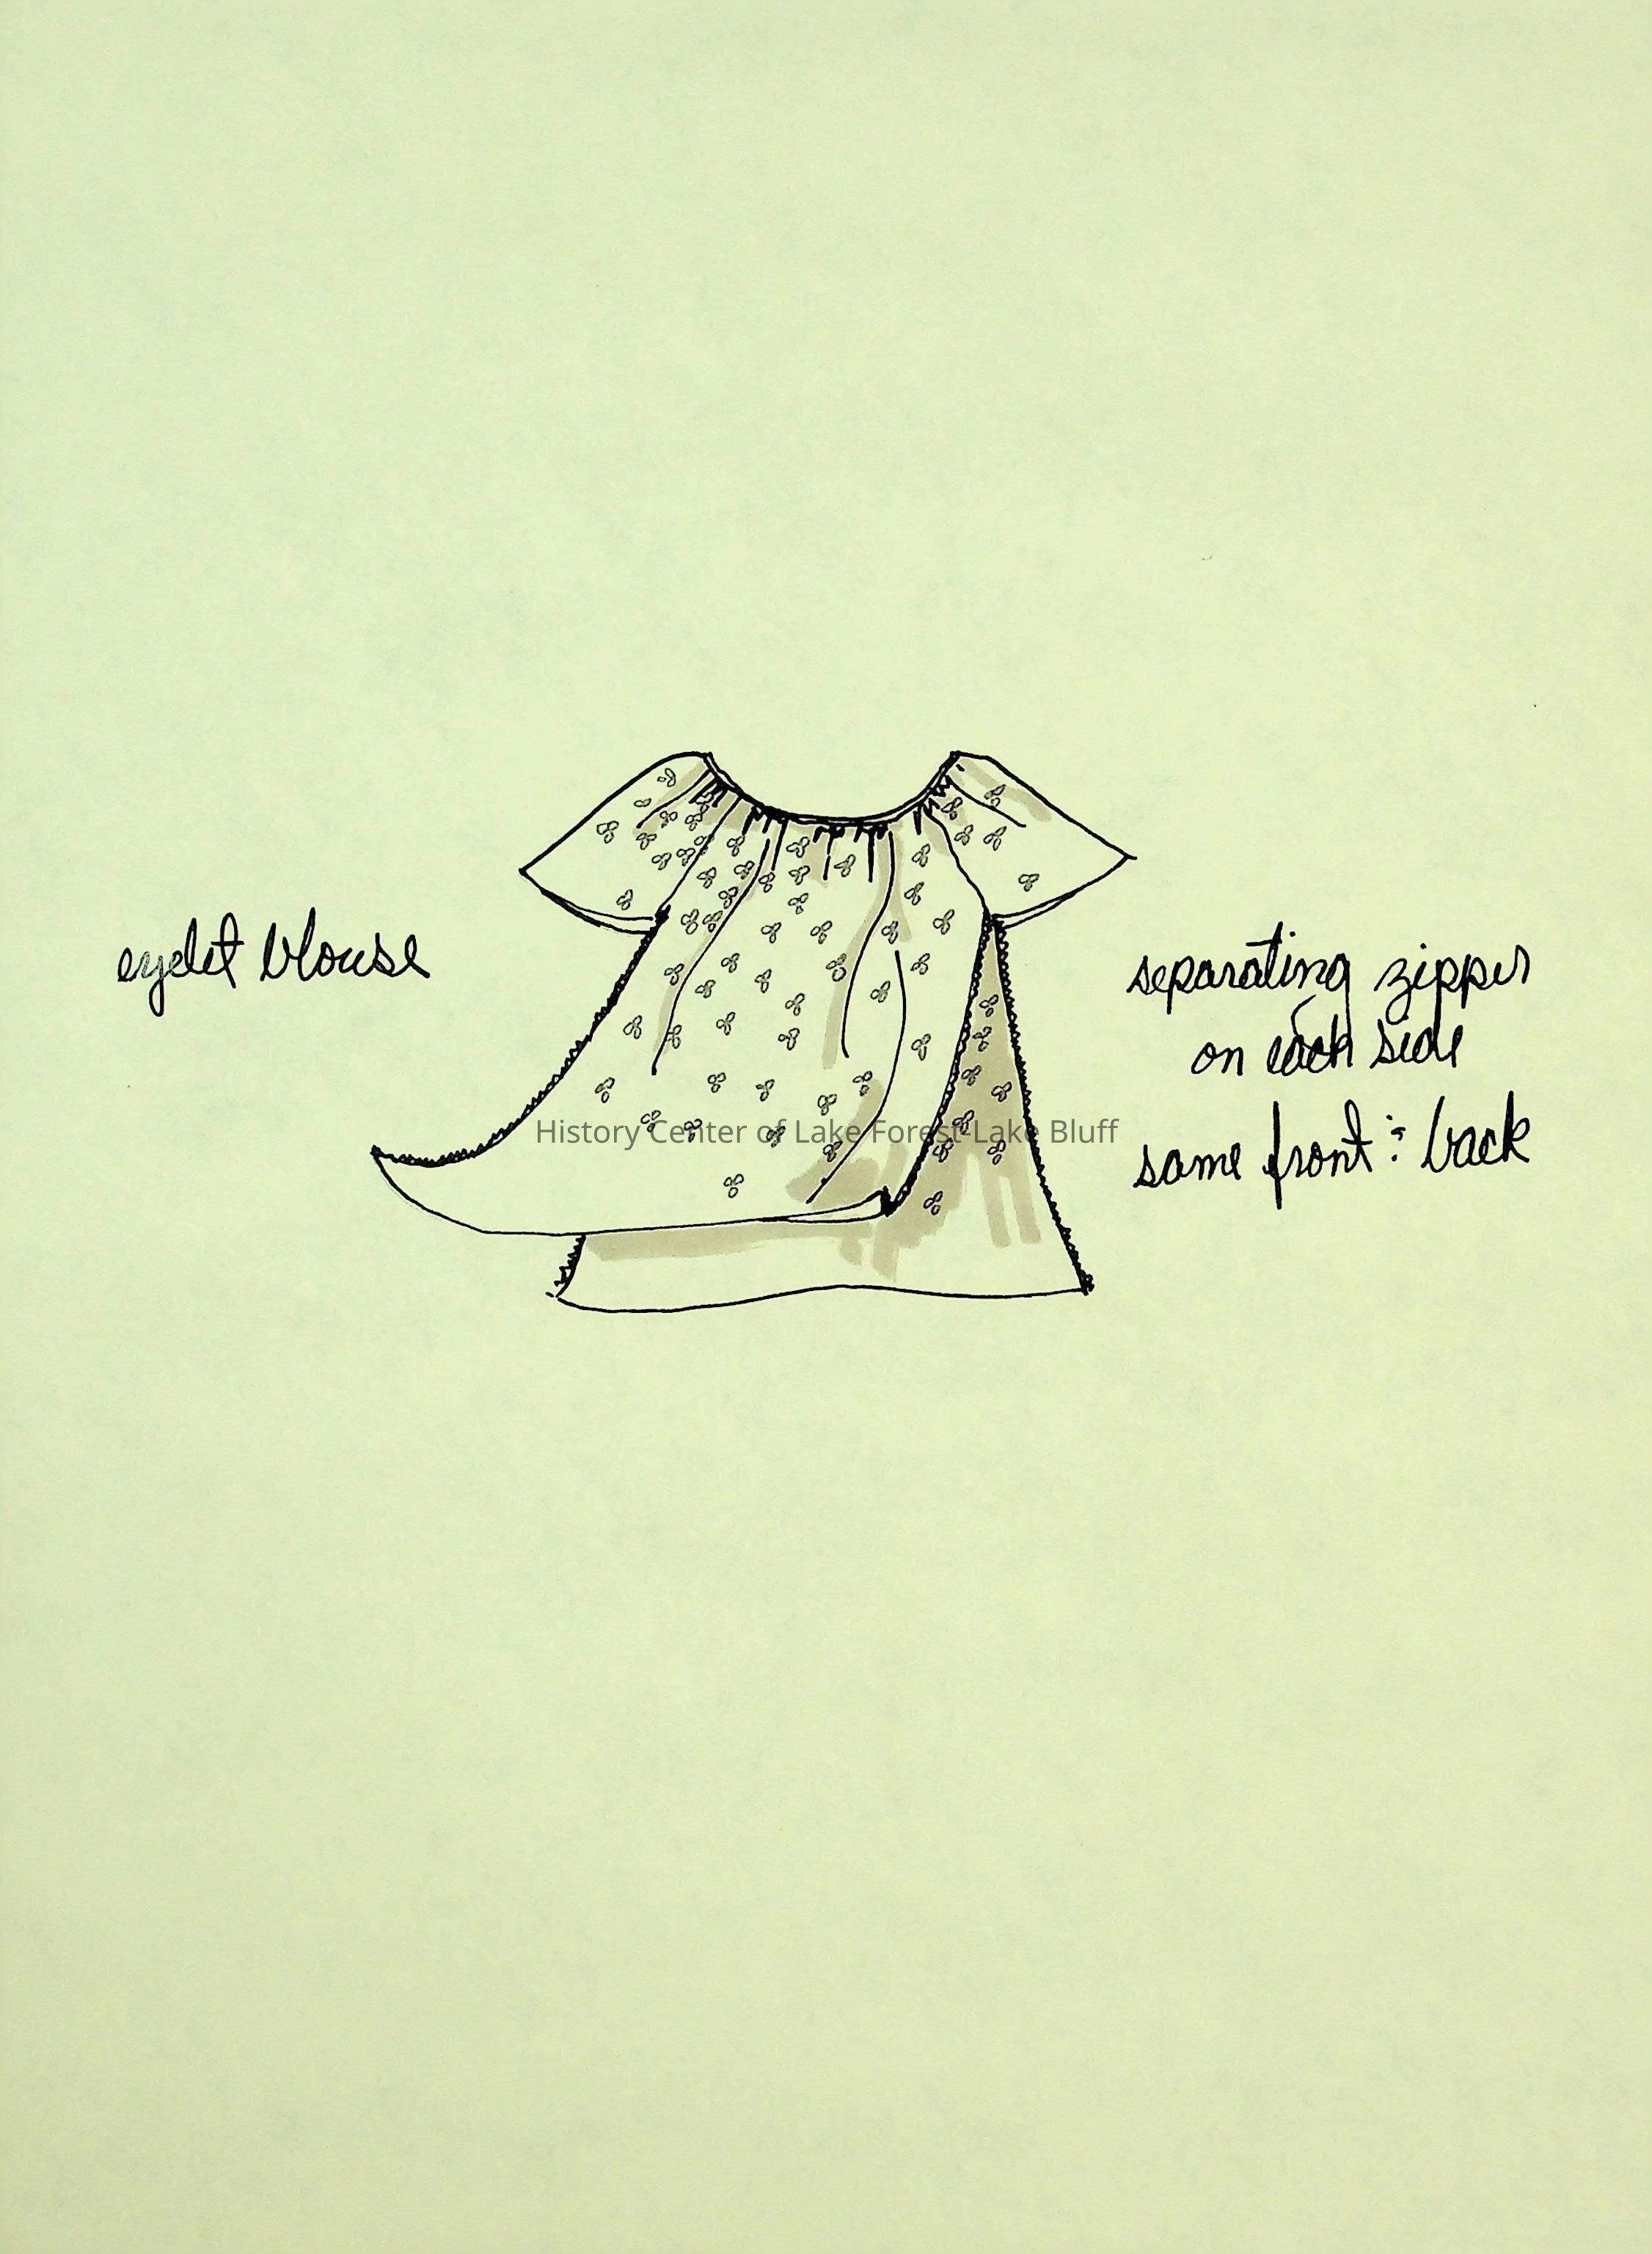 eyelet blouse
separating zipper
on each side
same front & back
History Center of Lake Forest-Lake Bluff